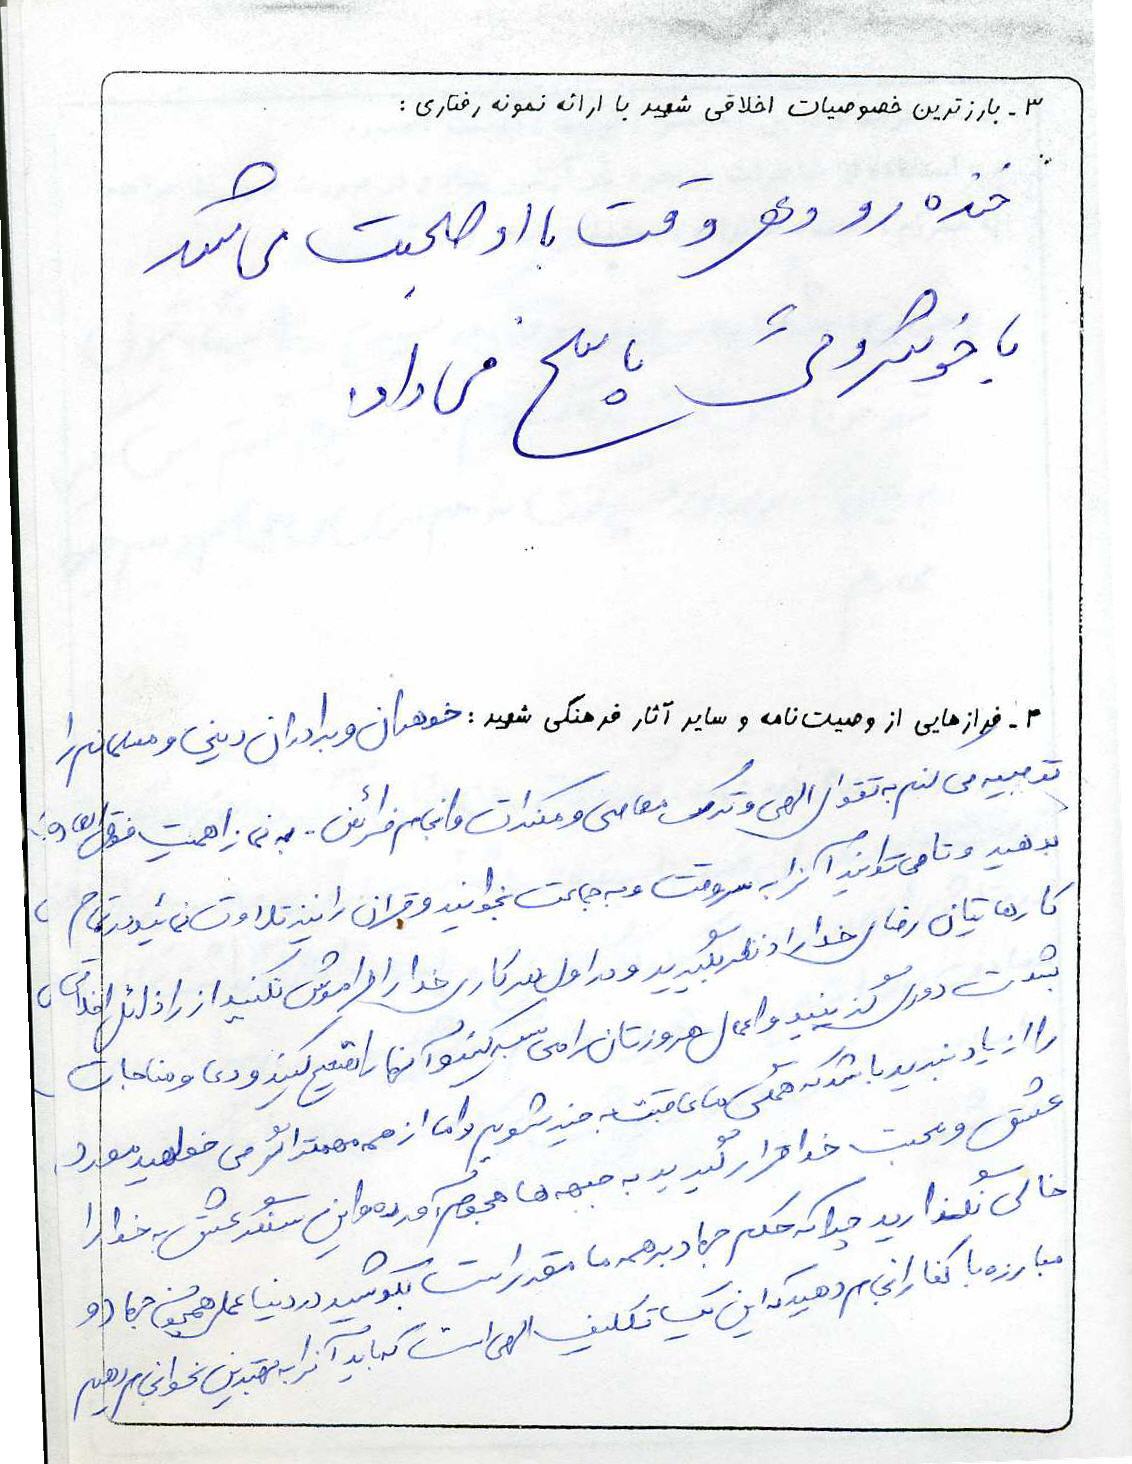 ۳- بارزترین خصوصیات اخلاقی شهید با ارائه نمونه رفتاری :
خنده رو و هر وقت با او صحبت می شد
با خوشروئی پاسخ می داد.
۴- فرازهایی از وصیت‌نامه و سایر آثار فرهنگی شهید : خوهران و برادران دینی و مسلمانم را
توصیه می کنم به تقوای الهی و ترک معاصی و منکرات و انجام فرائض - به نماز اهمیت فوق العاده
بدهید و تا می توانید آنرا به سروقت و به جماعت بخوانید و قرآن را نیز تلاوت نمائید در تمام
کارهایتان رضای خدا را در نظر بگیرید و در اول هر کاری خدا را فراموش نکنید از رذائل اخلاقی
بشدت دوری گزینید و اعمال هر روزتان را محاسبه کنید و آنها را تصحیح کنید و دعا و مناجات
را از یاد نبرید باشد که همگی عاقبت به خیر شویم و اما از همه مهمتر اگر می خواهید مورد
عشق و محبت خدا قرار گیرید به جبهه ها هجوم آورده و این سنگر عشق به خدا را
خالی نگذارید چرا که حکم جهاد بر همه ما مقدر است بکوشید در دنیا عملی همچون جهاد و
مبارزه با کفار انجام دهید که این یک تکلیف الهی است که باید آنرا به بهترین نحو انجام دهیم